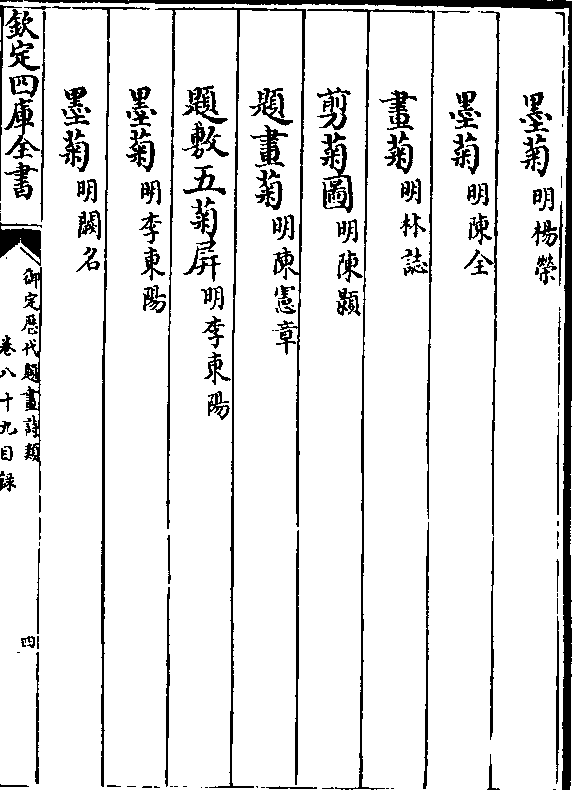 墨菊明楊榮
墨菊明陳全
畫菊明林誌
剪菊圖明陳顥
題畫菊明陳憲章
題敷五菊屏明李東陽
墨菊明李東陽
墨菊明闕名
欽定四庫全書
御定歷代題畫詩類
卷八十九目録
四